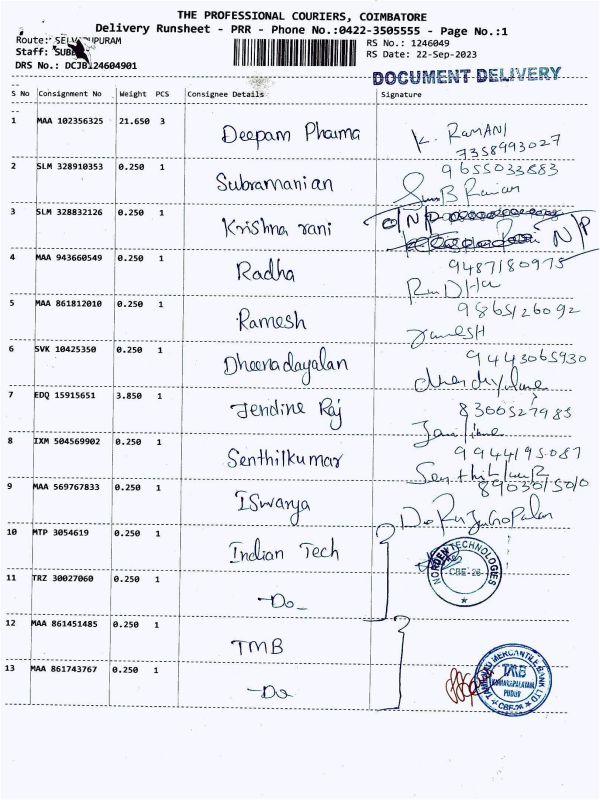 THE PROFESSIONAL COURIERS, COIMBATORE
Delivery Runsheet - PRR - Phone No.:0422-3505555 - Page No.:1
Route: SELV PURAM RS No.: 1246049
Staff: SUB RS Date: 22-Sep-2023
DRS No.: DCJB124604901
DOCUMENT DELIVERY
S No Consignment No Weight PCS Consignee Details Signature
1 MAA 102356325 21.650 3 Deepam Pharma K. RAMANI
7358993027
2 SLM 328910353 0.250 1 Subramanian 9655033883
3 SLM 328832126 0.250 1 Krishna rani N/P
N/P
4 MAA 943660549 0.250 1 Radha 9487180975
5 MAA 861812010 0.250 1 Ramesh 9865126092
6 SVK 10425350 0.250 1 Dheenadayalan 9443065930
7 EDQ 15915651 3.850 1 Jendine Raj 8300527985
8 IXM 504569902 0.250 1 Senthilkumar 9944195087
9 MAA 569767833 0.250 1 ISwarya 8903015010
10 MTP 3054619 0.250 1 Indian Tech
TECHNOLOGIES
CBE-26
11 TRZ 30027060 0.250 1 -Do-
12 MAA 861451485 0.250 1 TMB
13 MAA 861743767 0.250 1 -Do
TAMILNAD MERCANTILE BANK LTD
TMB
KUMARAPALAYAM
PUDUR
CBE-26